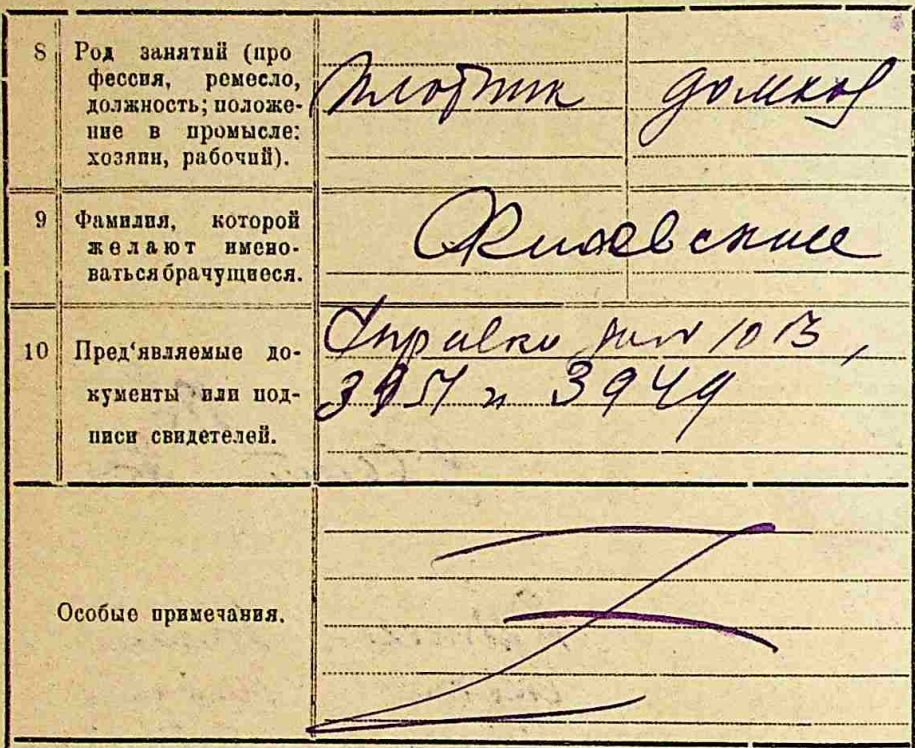 8 Род занятий (про
фессия, ремесло,
должность; положе-
ние в промысле:
хозяин, рабочий).
плотник домхоз
9 Фамилия, которой
желают имено-
ваться брачущиеся.
10 Пред‘являемые до-
кументы или под-
писи свидетелей.
Справки
3951 и 3949
Особые примечания.